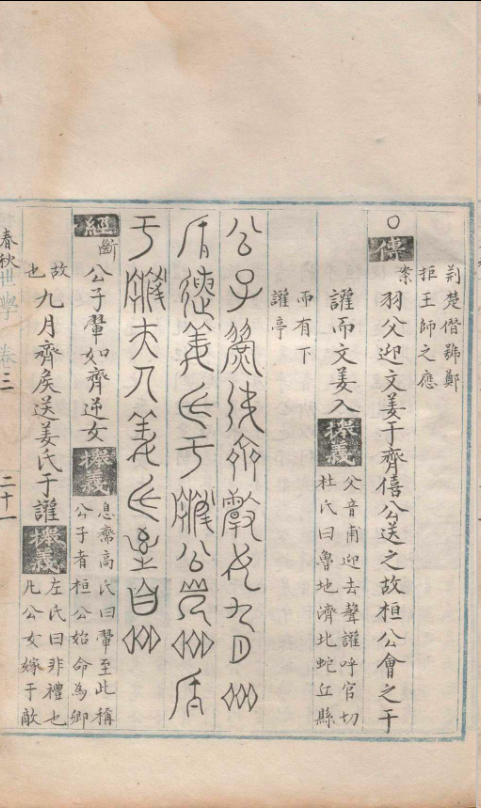 荊楚僭號鄭
拒王師之應
○傳案羽父迎文姜于齊僖公送之故桓公會之于
讙而文姜入機義
父音甫迎去聲讙呼官切
杜氏曰魯地濟北蛇丘縣
而有下
讙亭
公子翬如齊逆女九月齊
侯送姜氏于讙公會齊侯
于讙夫人姜氏至自齊
經斷公子翬如齊逆女機義
息齋高氏曰翬至此稱
公子者桓公始命為卿
故也九月齊侯送姜氏于讙機義
左氏曰非禮也
凡公女嫁于敵
春秋世學 卷三 二十一